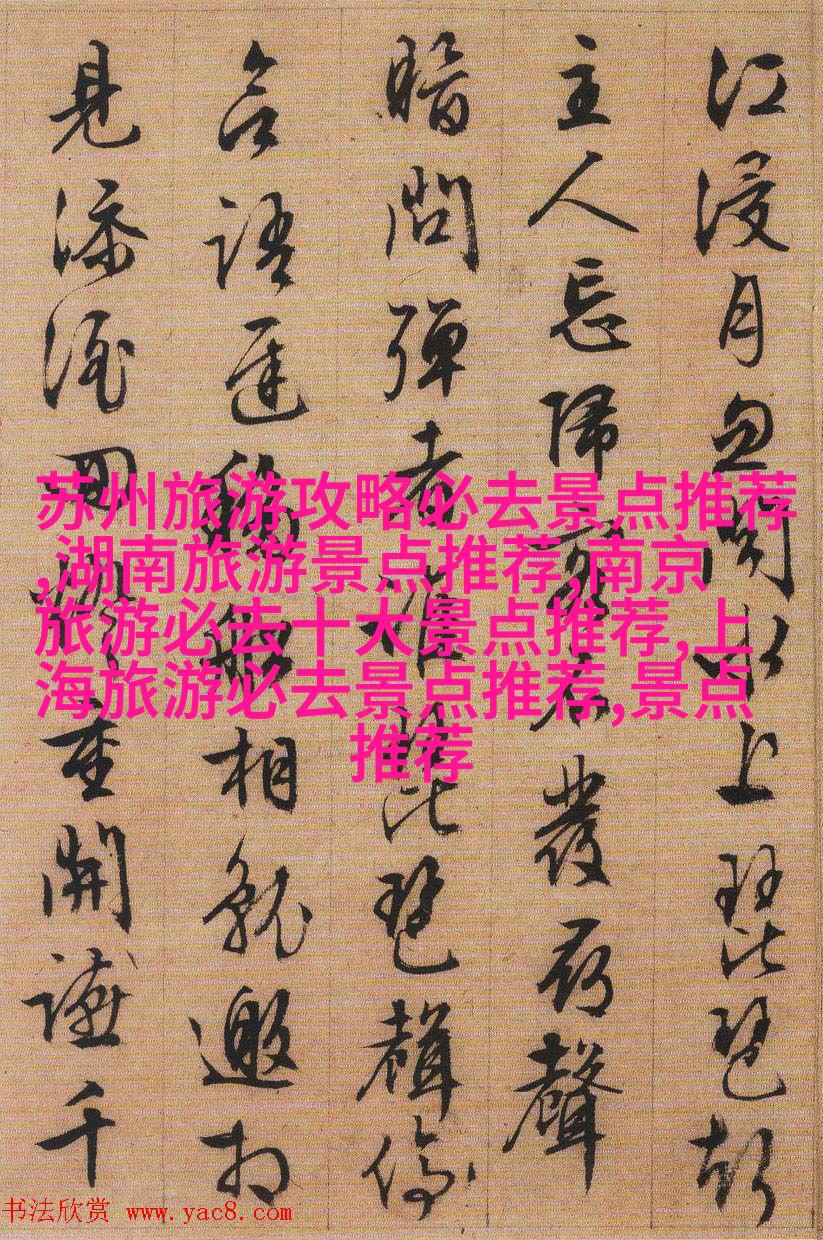 江浸月忽聞水上琵琶聲
主人忘歸客不發尋聲
暗問彈者誰琵琶聲停
語遲移船相就邀相
見添酒回燈重開讌千
苏州旅游攻略必去景点推荐
,湖南旅游景点推荐,南京
旅游必去十大景点推荐,上
海旅游必去景点推荐,景点
推荐
书法欣赏 www.yac8.com